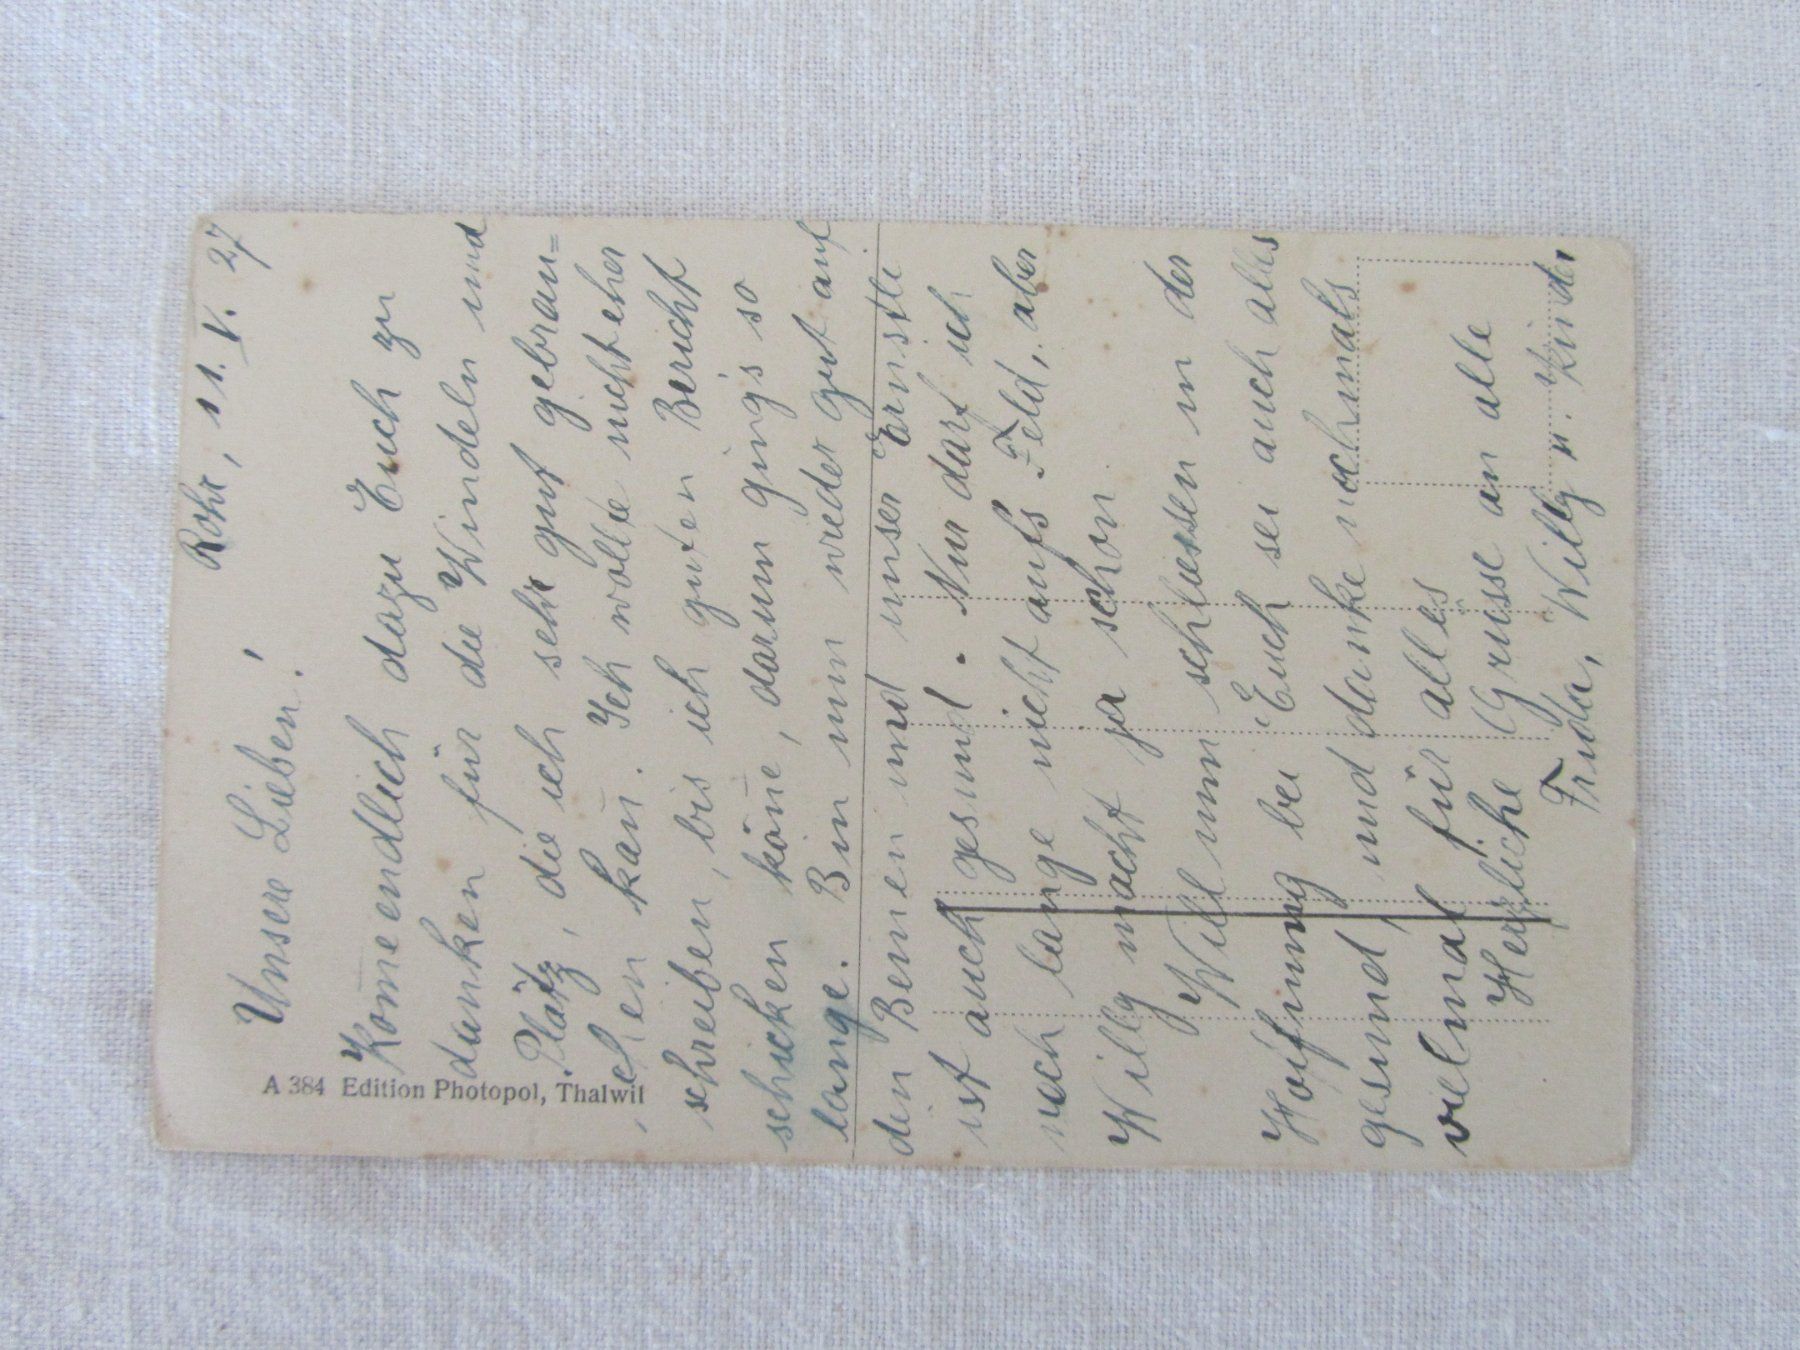 Rohr, 11. V. 27
Unsere Lieben!
Kom̄e endlich dazu Euch zu
danken für die Windeln und
Plätz, die ich sehr gut gebrau=
chen kan̄. Ich wollte nicht eher
schreiben, bis ich guten Bericht
schicken kön̄e, darum ging's so
lange. Bin nun wieder gut auf
den Beinen und unser Ernstli
ist auch gesund. Nur darf ich
noch lange nicht aufs Feld, aber
Willy macht ja schon.
Will nun schliessen in der
Hoffnung bei Euch sei auch alles
gesund, und danke nochmals
vielmal für alles
Herzliche Grüsse an alle
Frida, Willy u. Kinder
A 384 Edition Photopol, Thalwil